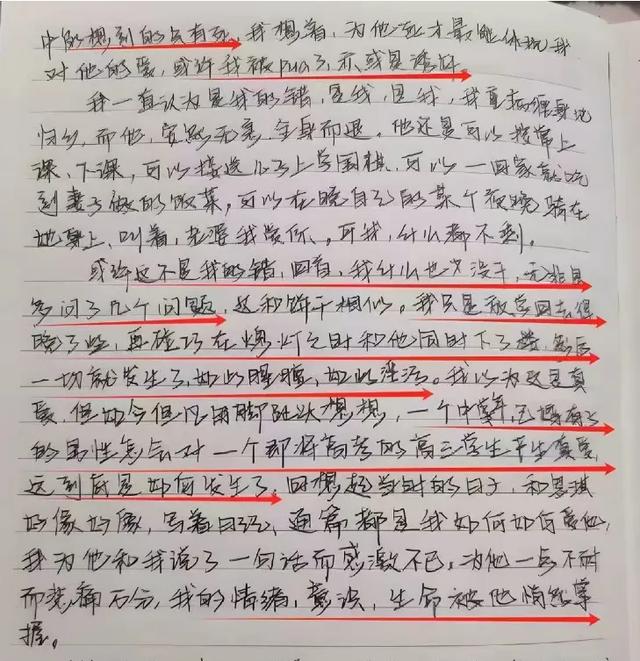 中能想到的只有死，我想着，为他死才最能体现我
对他的爱，或许我被pua了，亦或是活该。
我一直认为是我的错，是我，是我，我重病缠身地
归乡，而他，安然无恙，全身而退。他还是可以接常上
课、下课，可以接送儿子上学围棋，可以一回家就吃
到妻子做的饭菜，可以在晚自己的某个夜晚骑在
她身上，叫着，老婆我爱你、。可我，什么都不剩。
或许这不是我的错，回首，我什么也没干，无非是
多问了几个问题，这和饼干相似。我只是教学回去得
晚了些，再碰巧在熄灯之时和他同时下了楼，然后
一切就发生了，如此朦胧，如此。我以为这是真
爱，但如今但凡用脚趾头想想，一个中年，已婚有子
的男性怎会对一个即将高考的高三学生产生真爱，
这到底是如何发生了，回想起当时的日子，和思琪
好像好像，写着日记，通篇都是我如何如何爱他，
我为他和我说了一句话而感激不已，为他一点不耐
而悲痛万分，我的情绪，意识，生命被他悄然掌
握。